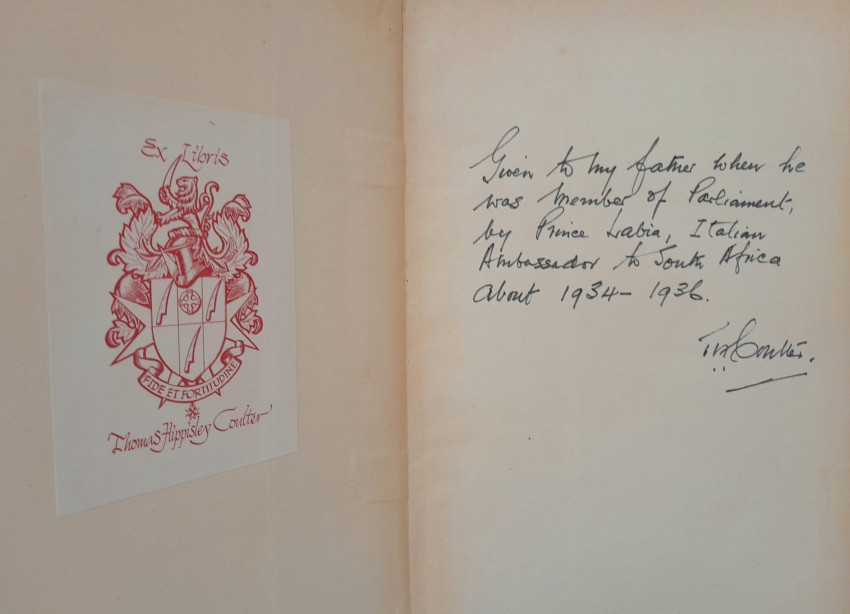 Ex Libris
FIDE ET FORTITUDINE
Thomas Hippisley Coulter
Given to my father when he
was Member of Parliament,
by Prince Labia, Italian
Ambassador to South Africa
About 1934 - 1936.
T H Coulter.